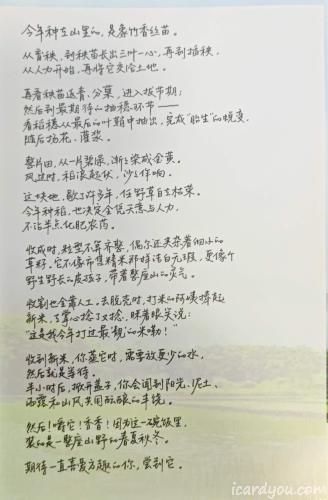 今年种在山里的，是象竹香丝苗。
从育秧、到秧苗长出三叶一心，再到插秧，
从人力开始，再将它交给土地。
再看秧苗返青、分蘖，进入拔节期；
然后到最期待的抽穗环节——
看稻穗从最后的叶鞘中抽出，完成“胎生”的蜕变，
随后扬花、灌浆。
整片田，从一片碧绿，渐渐染成金黄。
风过时，稻浪起伏，沙沙作响。
这块地，歇了许多年，任野草自生枯荣。
今年种稻，也决定全凭天意与人力，
不沾半点化肥农药。
收成时，粒型不算齐整，偶尔还夹杂着细小的
草籽。它不像市售精米那样洁白无瑕，更像个
野生野长的皮孩子，带着整座山的灵气。
收割也全靠人工。去脱壳时，打米的阿姨捧起
新米，在掌心捻了又捻，眯着眼笑说：
“这是我今年打过最靓的米嘞！”
收到新米，你蒸它时，需要放更少的水，
然后就是等待。
半小时后，掀开盖子，你会闻到阳光、泥土、
雨露和山风共同酝酿的丰饶。
然后！嚼它！香香！因为这一碗饭里，
装的是一整座山野的春夏秋冬。
期待一直喜爱方趣的你，尝到它。
icardyou.com